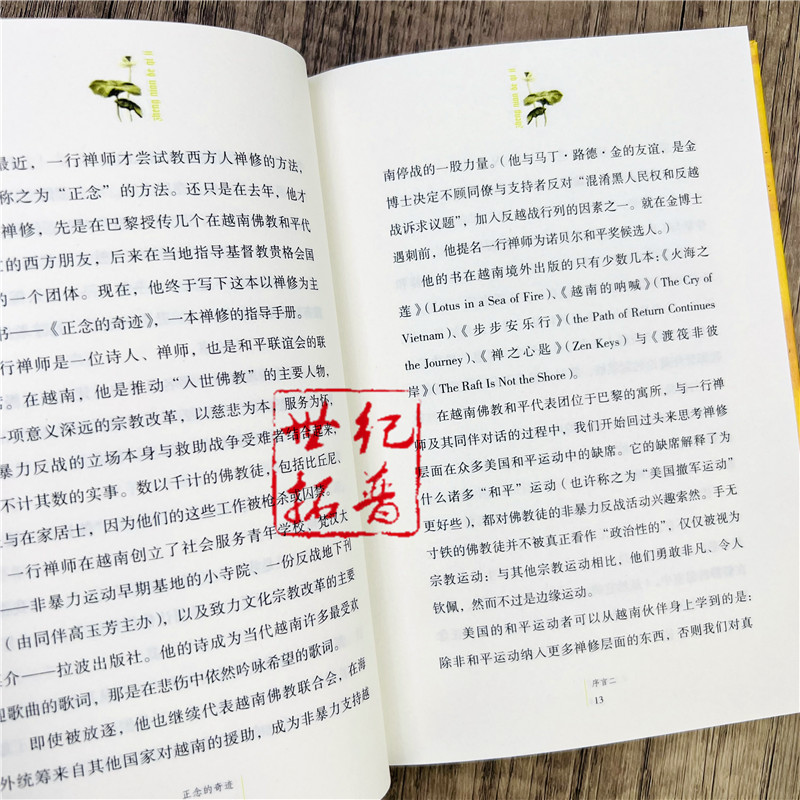 最近，一行禅师才尝试教西方人禅修的方法，
称之为“正念”的方法。还只是在去年，他才
禅修，先是在巴黎授传几个在越南佛教和平代
的西方朋友，后来在当地指导基督教贵格会国
的一个团体。现在，他终于写下这本以禅修为主
书——《正念的奇迹》，一本禅修的指导手册。
行禅师是一位诗人、禅师，也是和平联谊会的联
。在越南，他是推动“入世佛教”的主要人物，
一项意义深远的宗教改革，以慈悲为本，服务为怀，
暴力反战的立场本身与救助战争受难者结合起来，
不计其数的实事。数以千计的佛教徒，包括比丘尼、
与在家居士，因为他们的这些工作被枪杀或囚禁。
一行禅师在越南创立了社会服务青年学校、梵汉大
——非暴力运动早期基地的小寺院、一份反战地下刊
（由同伴高玉芳主办），以及致力文化宗教改革的主要
介——拉波出版社。他的诗成为当代越南许多最受欢
迎歌曲的歌词，那是在悲伤中依然吟咏希望的歌词。
即使被放逐，他也继续代表越南佛教联合会，在海
外统筹来自其他国家对越南的援助，成为非暴力支持越
正念的奇迹
zheng nian de qi ji
南停战的一股力量。（他与马丁·路德·金的友谊，是金
博士决定不顾同僚与支持者反对“混淆黑人民权和反越
战诉求议题”，加入反越战行列的因素之一。就在金博士
遇刺前，他提名一行禅师为诺贝尔和平奖候选人。）
他的书在越南境外出版的只有少数几本：《火海之
莲》（Lotus in a Sea of Fire）、《越南的呐喊》（The Cry of
Vietnam）、《步步安乐行》（the Path of Return Continues
the Journey）、《禅之心匙》（Zen Keys）与《渡筏非彼
岸》（The Raft Is Not the Shore）。
在越南佛教和平代表团位于巴黎的寓所，与一行禅
师及其同伴对话的过程中，我们开始回过头来思考禅修
层面在众多美国和平运动中的缺席。它的缺席解释了为
什么诸多“和平”运动（也许称之为“美国撤军运动”
更好些），都对佛教徒的非暴力反战活动兴趣索然。手无
寸铁的佛教徒并不被真正看作“政治性的”，仅仅被视为
宗教运动：与其他宗教运动相比，他们勇敢非凡、令人
钦佩，然而不过是边缘运动。
美国的和平运动者可以从越南伙伴身上学到的是：
除非和平运动纳入更多禅修层面的东西，否则我们对真
序言二
13
世纪
拓普